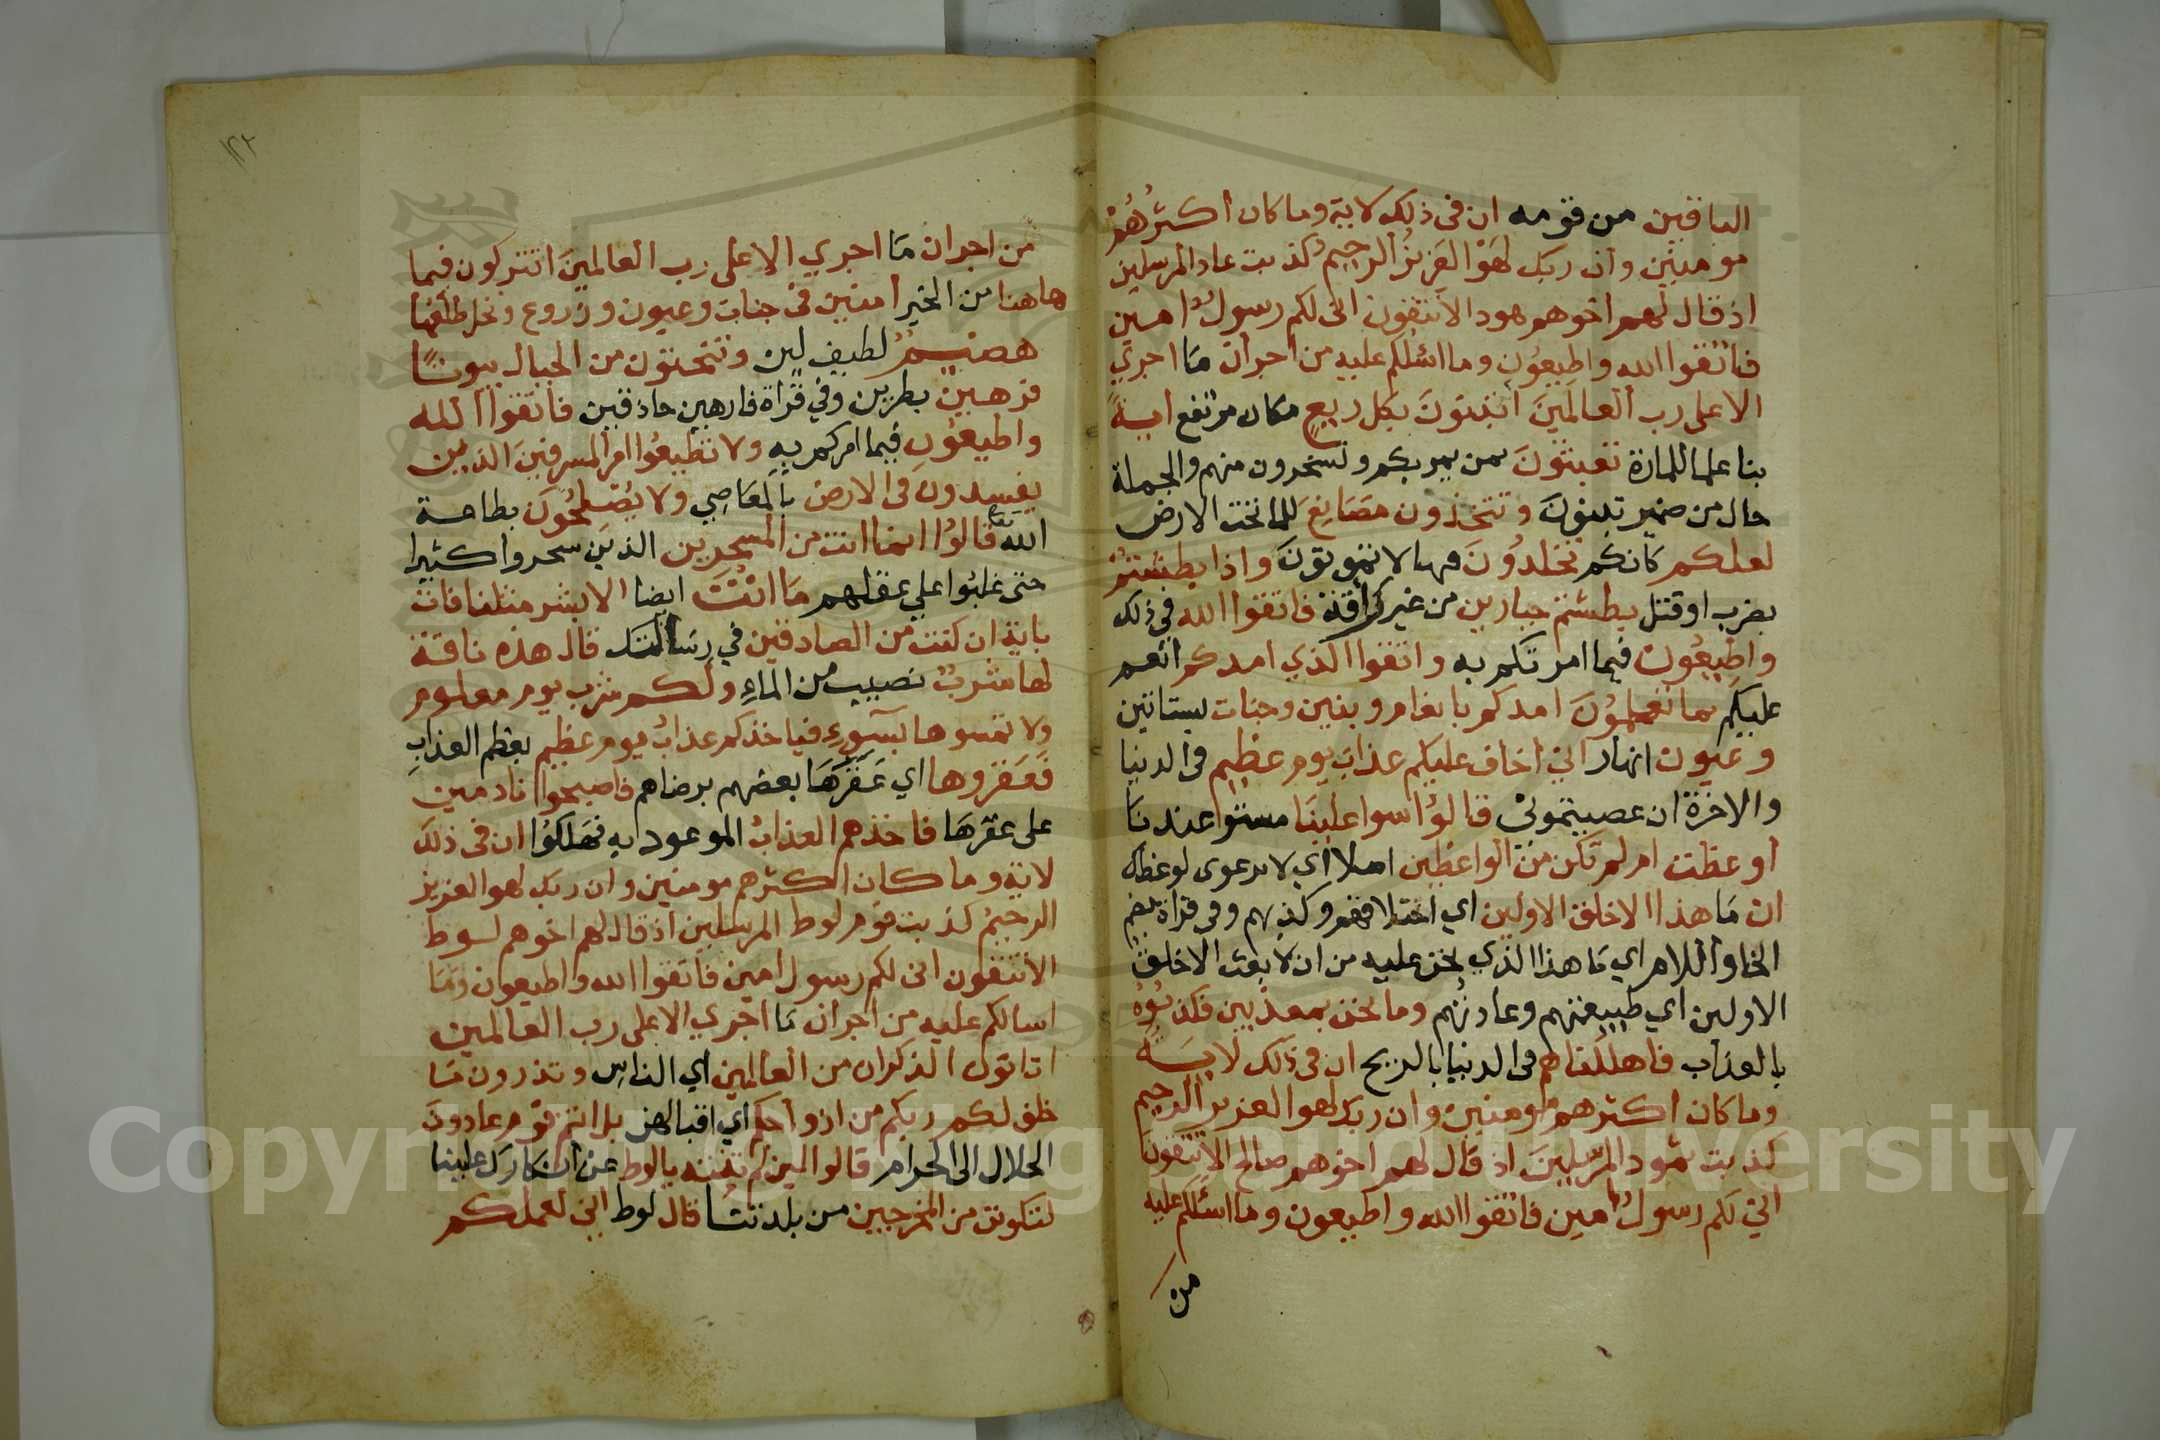 الباقين من قومه ان في ذلك لاية وما كان أكثرهُمْ
مومنين وان ربك لهَوْ العَزيزُ الرحِيمُ كذبت عاد المرسلين
اذ قال لهم اخوهم هود الا تتقون اني لكم رسولٌ امين
فاتقوا الله واطِيعُونِ وما اسئلكم عليه من اجر ان مَا اجري
الا على رب العالمينَ أتبنونَ بكل ريعٍ مكان مرتفع ايةً
بنا علما للمارة تعبثونَ بمن يمر بكم وتسخرون منهم والجملة
حال من ضمير تبنونَ وتتخذون مَصَانِعَ للما تحت الارض
لعلكم كانكم تخلدُونَ فيها لا تموتونَ واذا بطشتمْ
بضرب او قتل بطشتم جبارين من غير رافة فاتقوا الله في ذلك
واطِيعُون فيما امرتكم به واتقوا الذي امدكم انعم
عليكم بما تعلمُونَ امدكم بانعام وبنين وجنات بساتين
وعيون انهار اني أخاف عليكم عذابَ يوم عظِيم في الدنيا
والاخرة ان عصيتموني قالوُا سوا علينَا مستوا عندنا
أوعظت ام لم تكن من الواعظين اصلا اي لا نرعوى لوعظك
ان مَا هذا الا خلق الاولين اي اختلاقهم وكذبهم وفى قراة بضم
الخا واللام اي مَا هذا الذي نحن عليه من ان لا بعث الا خلق
الاولين اي طبيعتهم وعادتُهم وما نحن بمعذبين فكذبُوُهُ
بالعذاب فاهلكناهم في الدنيا بالريح ان في ذلك لايَةً
وما كان أكثرهم مومنين وان ربك لهو العزيز الرحيم
كذبت ثمود المرسلينَ اذ قال لهم اخوهم صالح الا تتقونَ
اني لكم رسولٌ امين فاتقوا الله واطيعون وما اسئلكم عليه
من
١٢٢
من اجر ان مَا اجري الا على رب العالمينَ اتتركون فيما
هاهنا من الخير أمنين في جنات وعيون وزروع ونخل طلعُها
هضيمٌ لطيف لين وتنحتون من الجبال بيوتًا
فرهين بطرين وفي قراة فارهين حاذقين فاتقوا الله
واطيعُونِ فيما امركم بِهِ ولا تطيعُوا امر المسرفينَ الذين
يفسدون في الارض بالمعَاصِي ولا يُصْلحُونَ بطاعة
الله تع قالوُا انما انت من المسحرين الذين سحروا كثيرا
حتى غلبُوا على عقلهم مَا انْتَ ايضا الا بشر مثلنا فات
باية ان كنت من الصادقين في رسَالتك قال هذه ناقة
لها شربٌ نصيب من الماءِ ولكم شرب يوم معلوم
ولا تمسوها بسُوءِ فياخذكم عذابُ يوم عظِيم بعظم العذابِ
فَعَقروها اي عَقرَهَا بعضهم برضاهم فاصبحوا نادمين
على عقرهَا فاخذهم العذابُ الموعود به فهلكوُا ان في ذلك
لاية وما كان اكثرهم مومنين وان ربك لهو العزيز
الرحيمُ كذبت قوم لوط المرسلين اذ قال لهم اخوهم لوط
الا تتقون اني لكم رسول امين فاتقوا الله واطيعون ومَا
اسالكم عليه من اجر ان مَا اجري الا على رب العالمين
اتاتون الذكران من العالمين اي الناس وتذرون مَا
خلق لكم ربكم من ازواجكم اي اقبالهن بل انتم قوم عادونَ
الحلال الى الحرام قالوا لين لم تنته يالوط عن انكارك علينا
لتكونن من المخرجين من بلدتنُا قال لوط اني لعملكم
Copyright © King Saud University